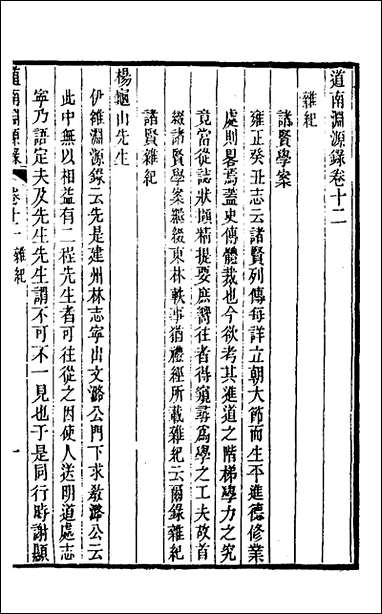 道南淵源錄卷十二
雜紀
諸賢學案
雍正癸丑志云諸賢列傳每詳立朝大節而生平進德修業
處則畧焉蓋史傳體裁也今欲考其進道之階梯學力之究
竟當從誌狀擷精提要庶嚮往者得窺尋爲學之工夫故首
綴諸賢學案繼綴東林軼事猶禮經所載雜紀云爾錄雜紀
諸賢雜紀
楊龜山先生
伊雒淵源錄云先是建州林志寧出文潞公門下求敎潞公云
此中無以相益有二程先生者可往從之因使人送明道處志
寧乃語定夫及先生先生謂不可不一見也于是同行時謝顯
道南淵源錄 卷十二 雜紀 一